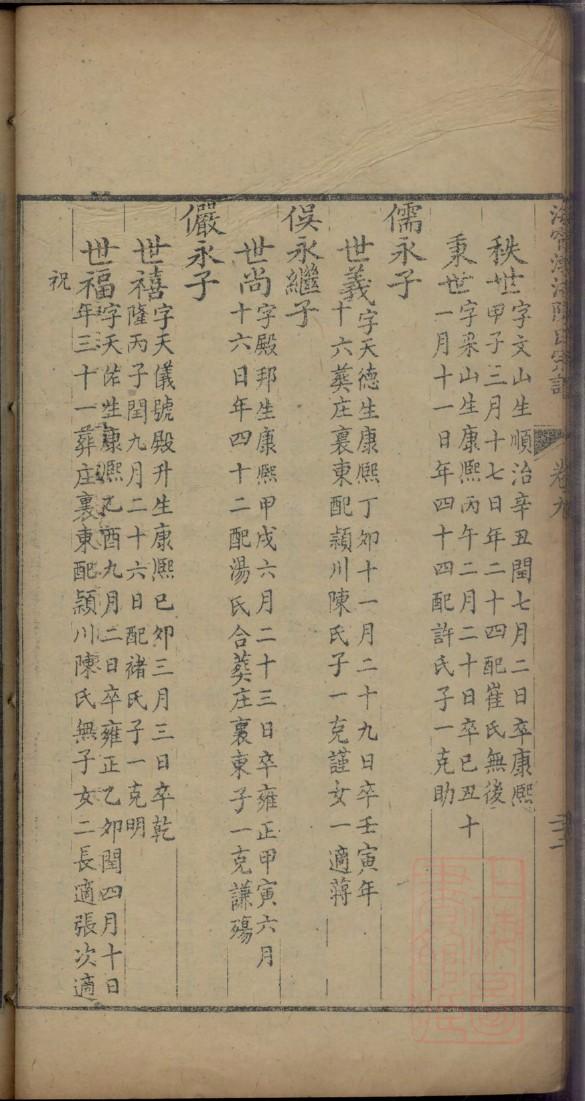 海寧渤海陳氏宗譜
卷九
秩世字文山生順治辛丑閏七月二日卒康熙
甲子三月十七日年二十四配崔氏無後
秉世字梁山生康熙丙午二月二十日卒已丑十
一月十一日年四十四配許氏子一克助
儒永子
世義字天德生康熙丁夘十一月二十九日卒壬寅年
十六葬庄裏東配潁川陳氏子一克謹女一適蔣
俁永繼子
世尚字殿邦生康熙甲戌六月二十三日卒雍正甲寅六月
十六日年四十二配湯氏合葬庄裏東子一克謙殤
儼永子
世禧字天儀號殿升生康熙已夘三月三日卒乾
隆丙子閏九月二十六日配褚氏子一克明
世福字天佑生康熙乙酉九月二日卒雍正乙夘閏四月十日
年三十一葬庄裏東配潁川陳氏無子女二長適張次適
祝